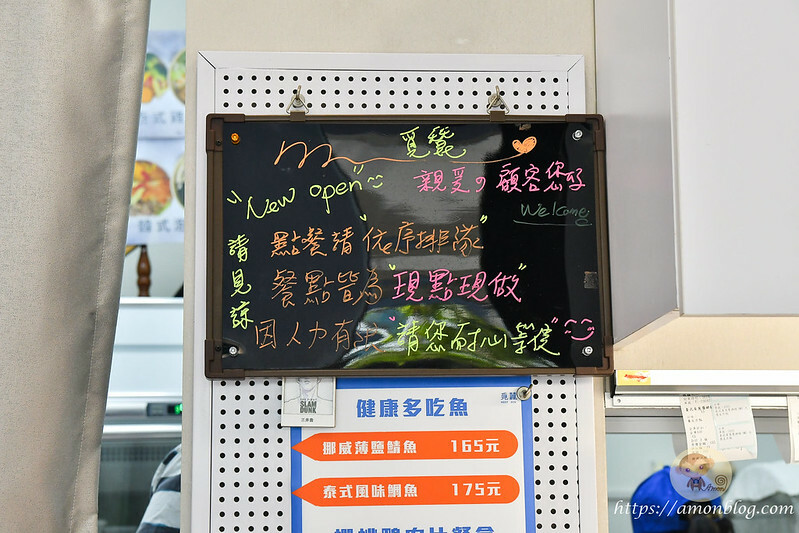 覓㲠
"New open"
親愛の顧客您好
Welcome
點餐請"依序排隊"
餐點皆為"現點現做"
因人力有限"請您耐心等候"
請見諒
SLAM DUNK
健康多吃魚
挪威薄鹽鯖魚 165元
泰式風味鯛魚 175元
https://amonblog.com